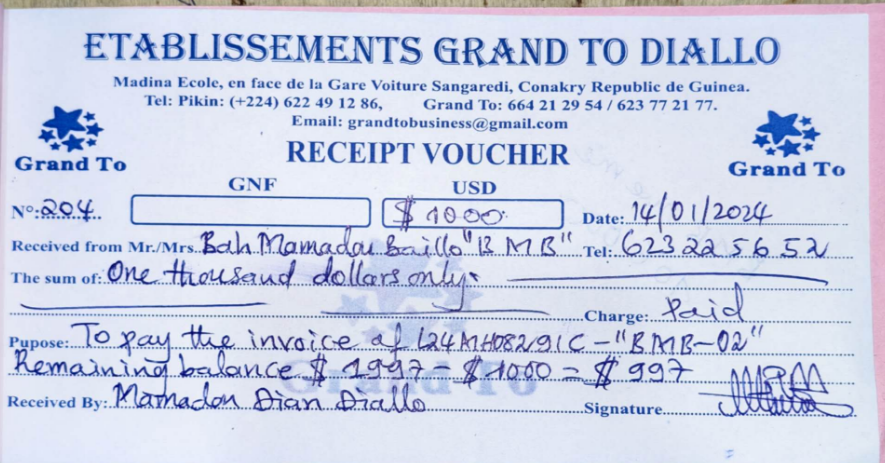 ETABLISSEMENTS GRAND TO DIALLO
Madina Ecole, en face de la Gare Voiture Sangaredi, Conakry Republic de Guinea.
Tel: Pikin: (+224) 622 49 12 86, Grand To: 664 21 29 54 / 623 77 21 77.
Email: grandtobusiness@gmail.com
Grand To
RECEIPT VOUCHER
Grand To
GNF USD
Nº: 204 $ 1000 Date: 14/01/2024
Received from Mr./Mrs. Bah Mamadou Baillo "B M B" Tel: 623 22 56 52
The sum of: One thousand dollars only.
Charge: Paid
Pupose: To pay the invoice of L24MH08291C - "BMB-02"
Remaining balance $ 1997 - $ 1000 = $ 997
Received By: Mamadou Dian Diallo Signature
Grand To